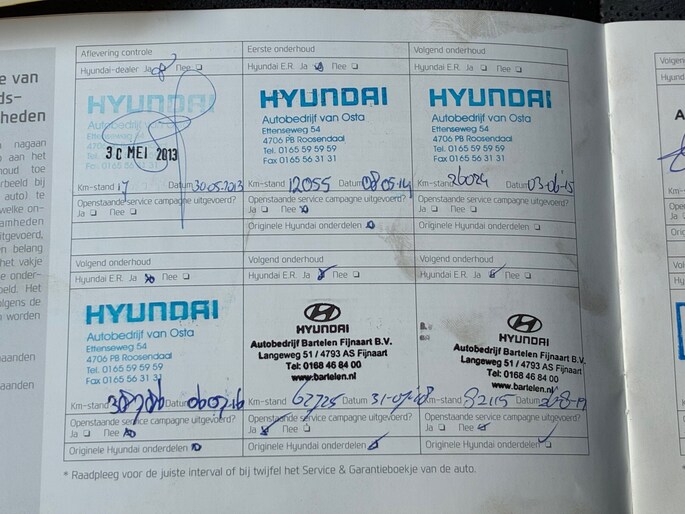 e van
ds-
heden
nagaan
aan het
houd toe
rbeeld bij
auto) te
welke on-
amheden
itgevoerd,
en belang
het vakje
e onder-
eld. Het
olgens de
o worden
aanden
aanden
Aflevering controle
Hyundai-dealer Ja Nee
HYUNDAI
Autobedrijf van Osta
Ettenseweg 54
4706 PB Roosendaal
Tel. 0165 59 59 59
Fax 0165 56 31 31
30 MEI 2013
Km-stand 17 Datum 30-05-2013
Openstaande service campagne uitgevoerd?
Ja Nee
Eerste onderhoud
Hyundai E.R. Ja Nee
HYUNDAI
Autobedrijf van Osta
Ettenseweg 54
4706 PB Roosendaal
Tel. 0165 59 59 59
Fax 0165 56 31 31
Km-stand 12055 Datum 08-05-14
Openstaande service campagne uitgevoerd?
Ja Nee
Originele Hyundai onderdelen
Volgend onderhoud
Hyundai E.R. Ja Nee
HYUNDAI
Autobedrijf van Osta
Ettenseweg 54
4706 PB Roosendaal
Tel. 0165 59 59 59
Fax 0165 56 31 31
Km-stand 26024 Datum 03-06-15
Openstaande service campagne uitgevoerd?
Ja Nee
Originele Hyundai onderdelen
Volgend onderhoud
Hyundai E.R. Ja Nee
HYUNDAI
Autobedrijf van Osta
Ettenseweg 54
4706 PB Roosendaal
Tel. 0165 59 59 59
Fax 0165 56 31 31
Km-stand Datum
Openstaande service campagne uitgevoerd?
Ja Nee
Originele Hyundai onderdelen
Volgend onderhoud
Hyundai E.R. Ja Nee
HYUNDAI
Autobedrijf Bartelen Fijnaart B.V.
Langeweg 51 / 4793 AS Fijnaart
Tel: 0168 46 84 00
www.bartelen.nl
Km-stand 62725 Datum 31-07-18
Openstaande service campagne uitgevoerd?
Ja Nee
Originele Hyundai onderdelen
Volgend onderhoud
Hyundai E.R. Ja Nee
HYUNDAI
Autobedrijf Bartelen Fijnaart B.V.
Langeweg 51 / 4793 AS Fijnaart
Tel: 0168 46 84 00
www.bartelen.nl
Km-stand 82115 Datum
Openstaande service campagne uitgevoerd?
Ja Nee
Originele Hyundai onderdelen
* Raadpleeg voor de juiste interval of bij twijfel het Service & Garantieboekje van de auto.